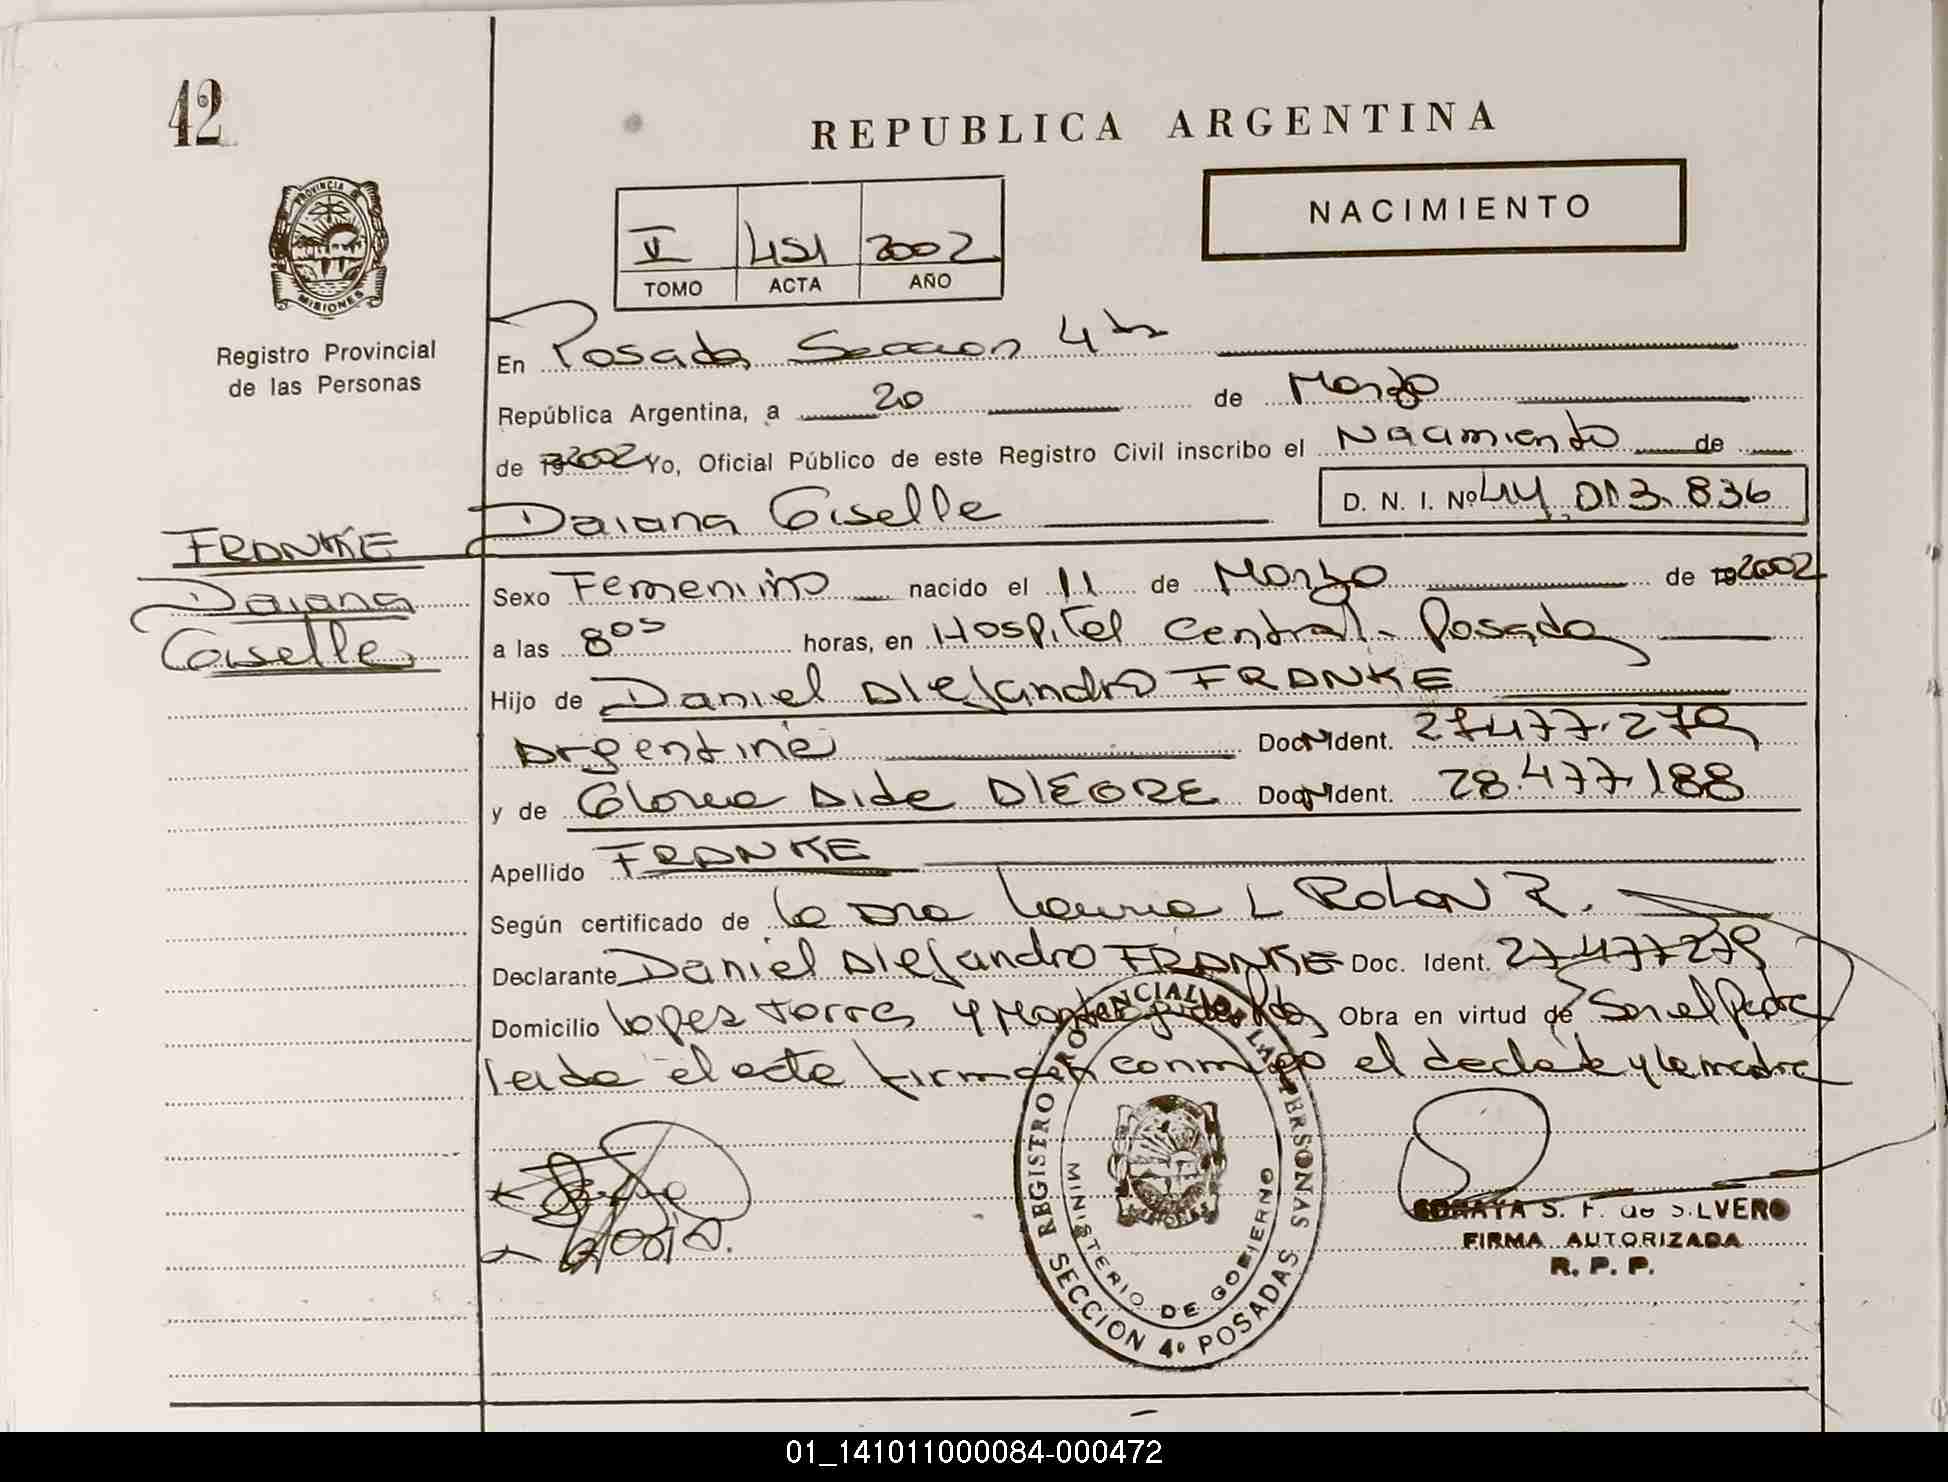 42
REPUBLICA ARGENTINA
NACIMIENTO
PROVINCIA DE MISIONES
Registro Provincial
de las Personas
V 451 2002
TOMO ACTA AÑO
En Posadas Seccion 4ta
República Argentina, a 20 de Marzo
de 19 2002 Yo, Oficial Público de este Registro Civil inscribo el Nacimiento de
Daiana Giselle D. N. I. Nº 44.013.836
FRANKE
Daiana
Giselle
Sexo Femenino nacido el 11 de Marzo de 19 2002
a las 8 05 horas, en Hospital Central - Posadas
Hijo de Daniel Alejandro FRANKE
Argentine Doc. Ident. 27.477.279
y de Gloria Aide ALEGRE Doc. Ident. 28.477.188
Apellido FRANKE
Según certificado de la Dra Laura L ROLON R.
Declarante Daniel Alejandro FRANKE Doc. Ident. 27.477279
Domicilio Lopez Torres y Obra en virtud de Ser el Padre
leida el acta firman conmigo el y la madre
REGISTRO PROVINCIAL DE LAS PERSONAS
MINISTERIO DE GOBIERNO
SECCION 4º POSADAS
SORAYA S. F. de SILVERO
FIRMA AUTORIZADA
R. P. P.
01_141011000084-000472